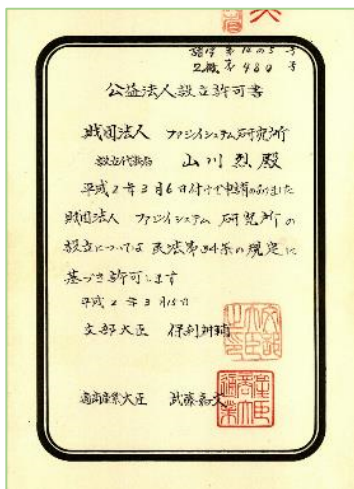 諸学第12の5号
2機第480号
公益法人設立許可書
財団法人 ファジィシステム研究所
設立代表者 山川烈殿
平成2年3月6日付けで申請のありました
財団法人 ファジィシステム 研究所の
設立については 民法第34条の規定に
基づき許可します
平成2年3月15日
文部大臣 保利耕輔
通商産業大臣 武藤嘉文